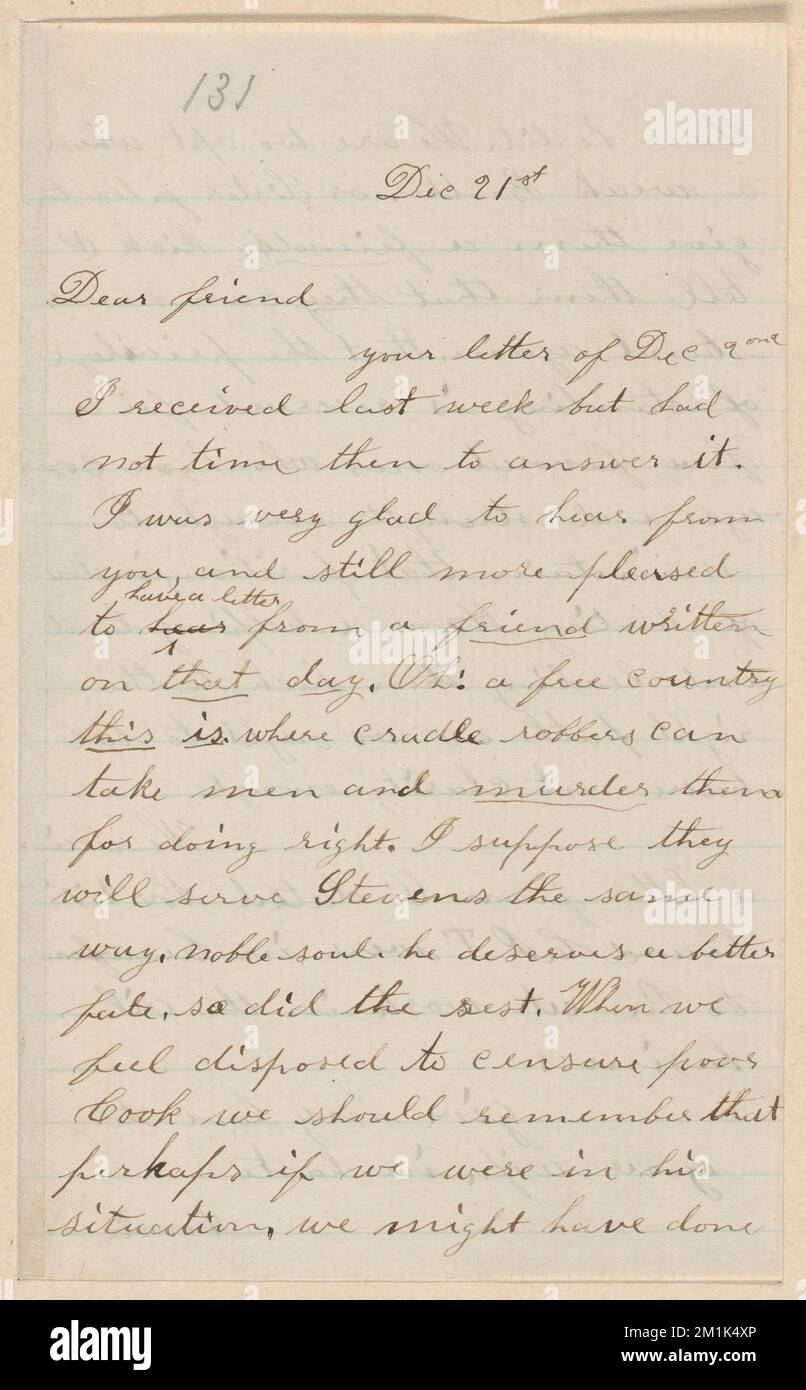 131
Dec 21st
Dear friend
your letter of Dec 2ond
I received last week but had
not time then to answer it.
I was very glad to hear from
you, and still more pleased
have a letter
to hear from a friend written
on that day. Oh! a free country
this is. where cradle robbers can
take men and murder them
for doing right. I suppose they
will serve Stevens the same
way. noble soul. he deserves a better
fate. so did the rest. When we
feel disposed to censure poor
Cook we should remember that
perhaps if we were in his
situation, we might have done
alamy
alamy
Image ID: 2M1K4XP
www.alamy.com